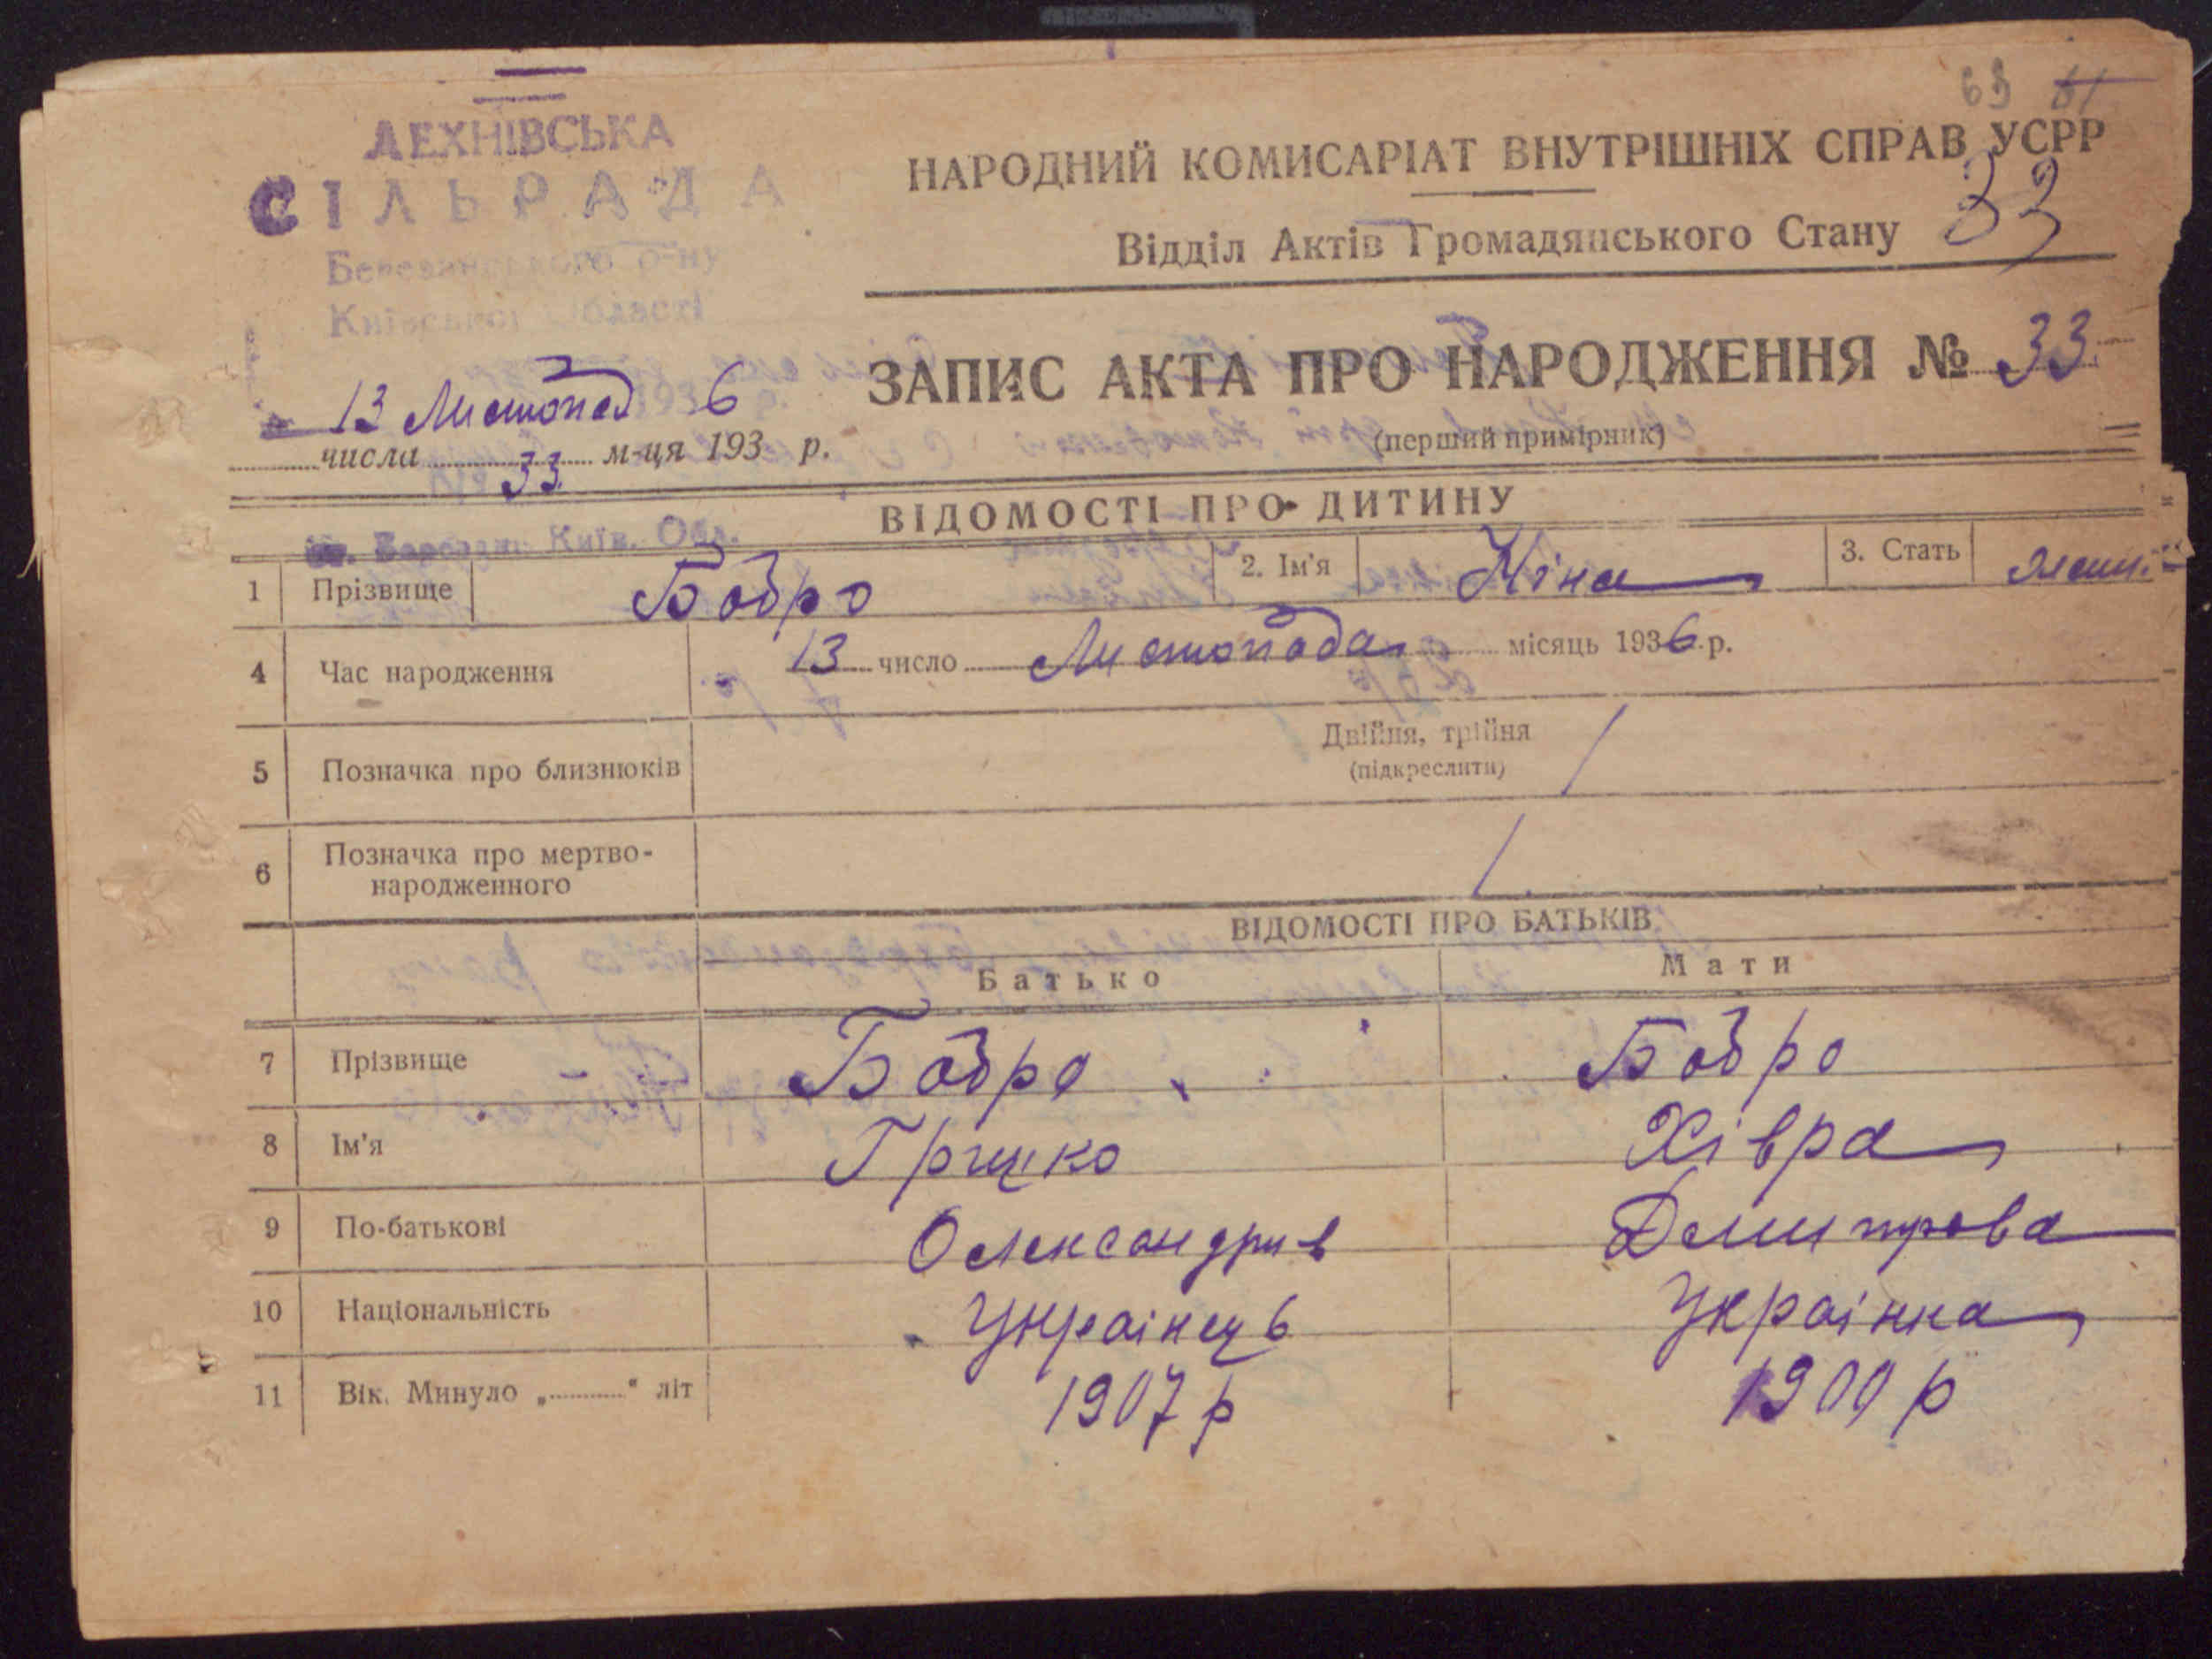 63 61
ЛЕХНІВСЬКА
СІЛЬРАДА
Березанського р-ну
Київської Області
НАРОДНИЙ КОМИСАРІАТ ВНУТРІШНІХ СПРАВ УСРР
Відділ Актів Громадянського Стану 33
ЗАПИС АКТА ПРО НАРОДЖЕННЯ № 33
(перший примірник)
13 Листопад 6
числа м-ця 193 р.
33
ВІДОМОСТІ ПРО ДИТИНУ
Київ. Обл.
1 Прізвище Бобро 2. Ім'я Ніна 3. Стать
4 Час народження 13 число Листопада місяць 1936 р.
5 Позначка про близнюків Двійня, трійня
(підкреслити)
6 Позначка про мертво-
народженного
ВІДОМОСТІ ПРО БАТЬКІВ
Батько Мати
7 Прізвище Бобро Бобро
8 Ім'я Грицко Хівра
9 По-батькові Олександрив Демитрова
10 Національність Українець Українка
11 Вік. Минуло „............" літ 1907 р 1900 р